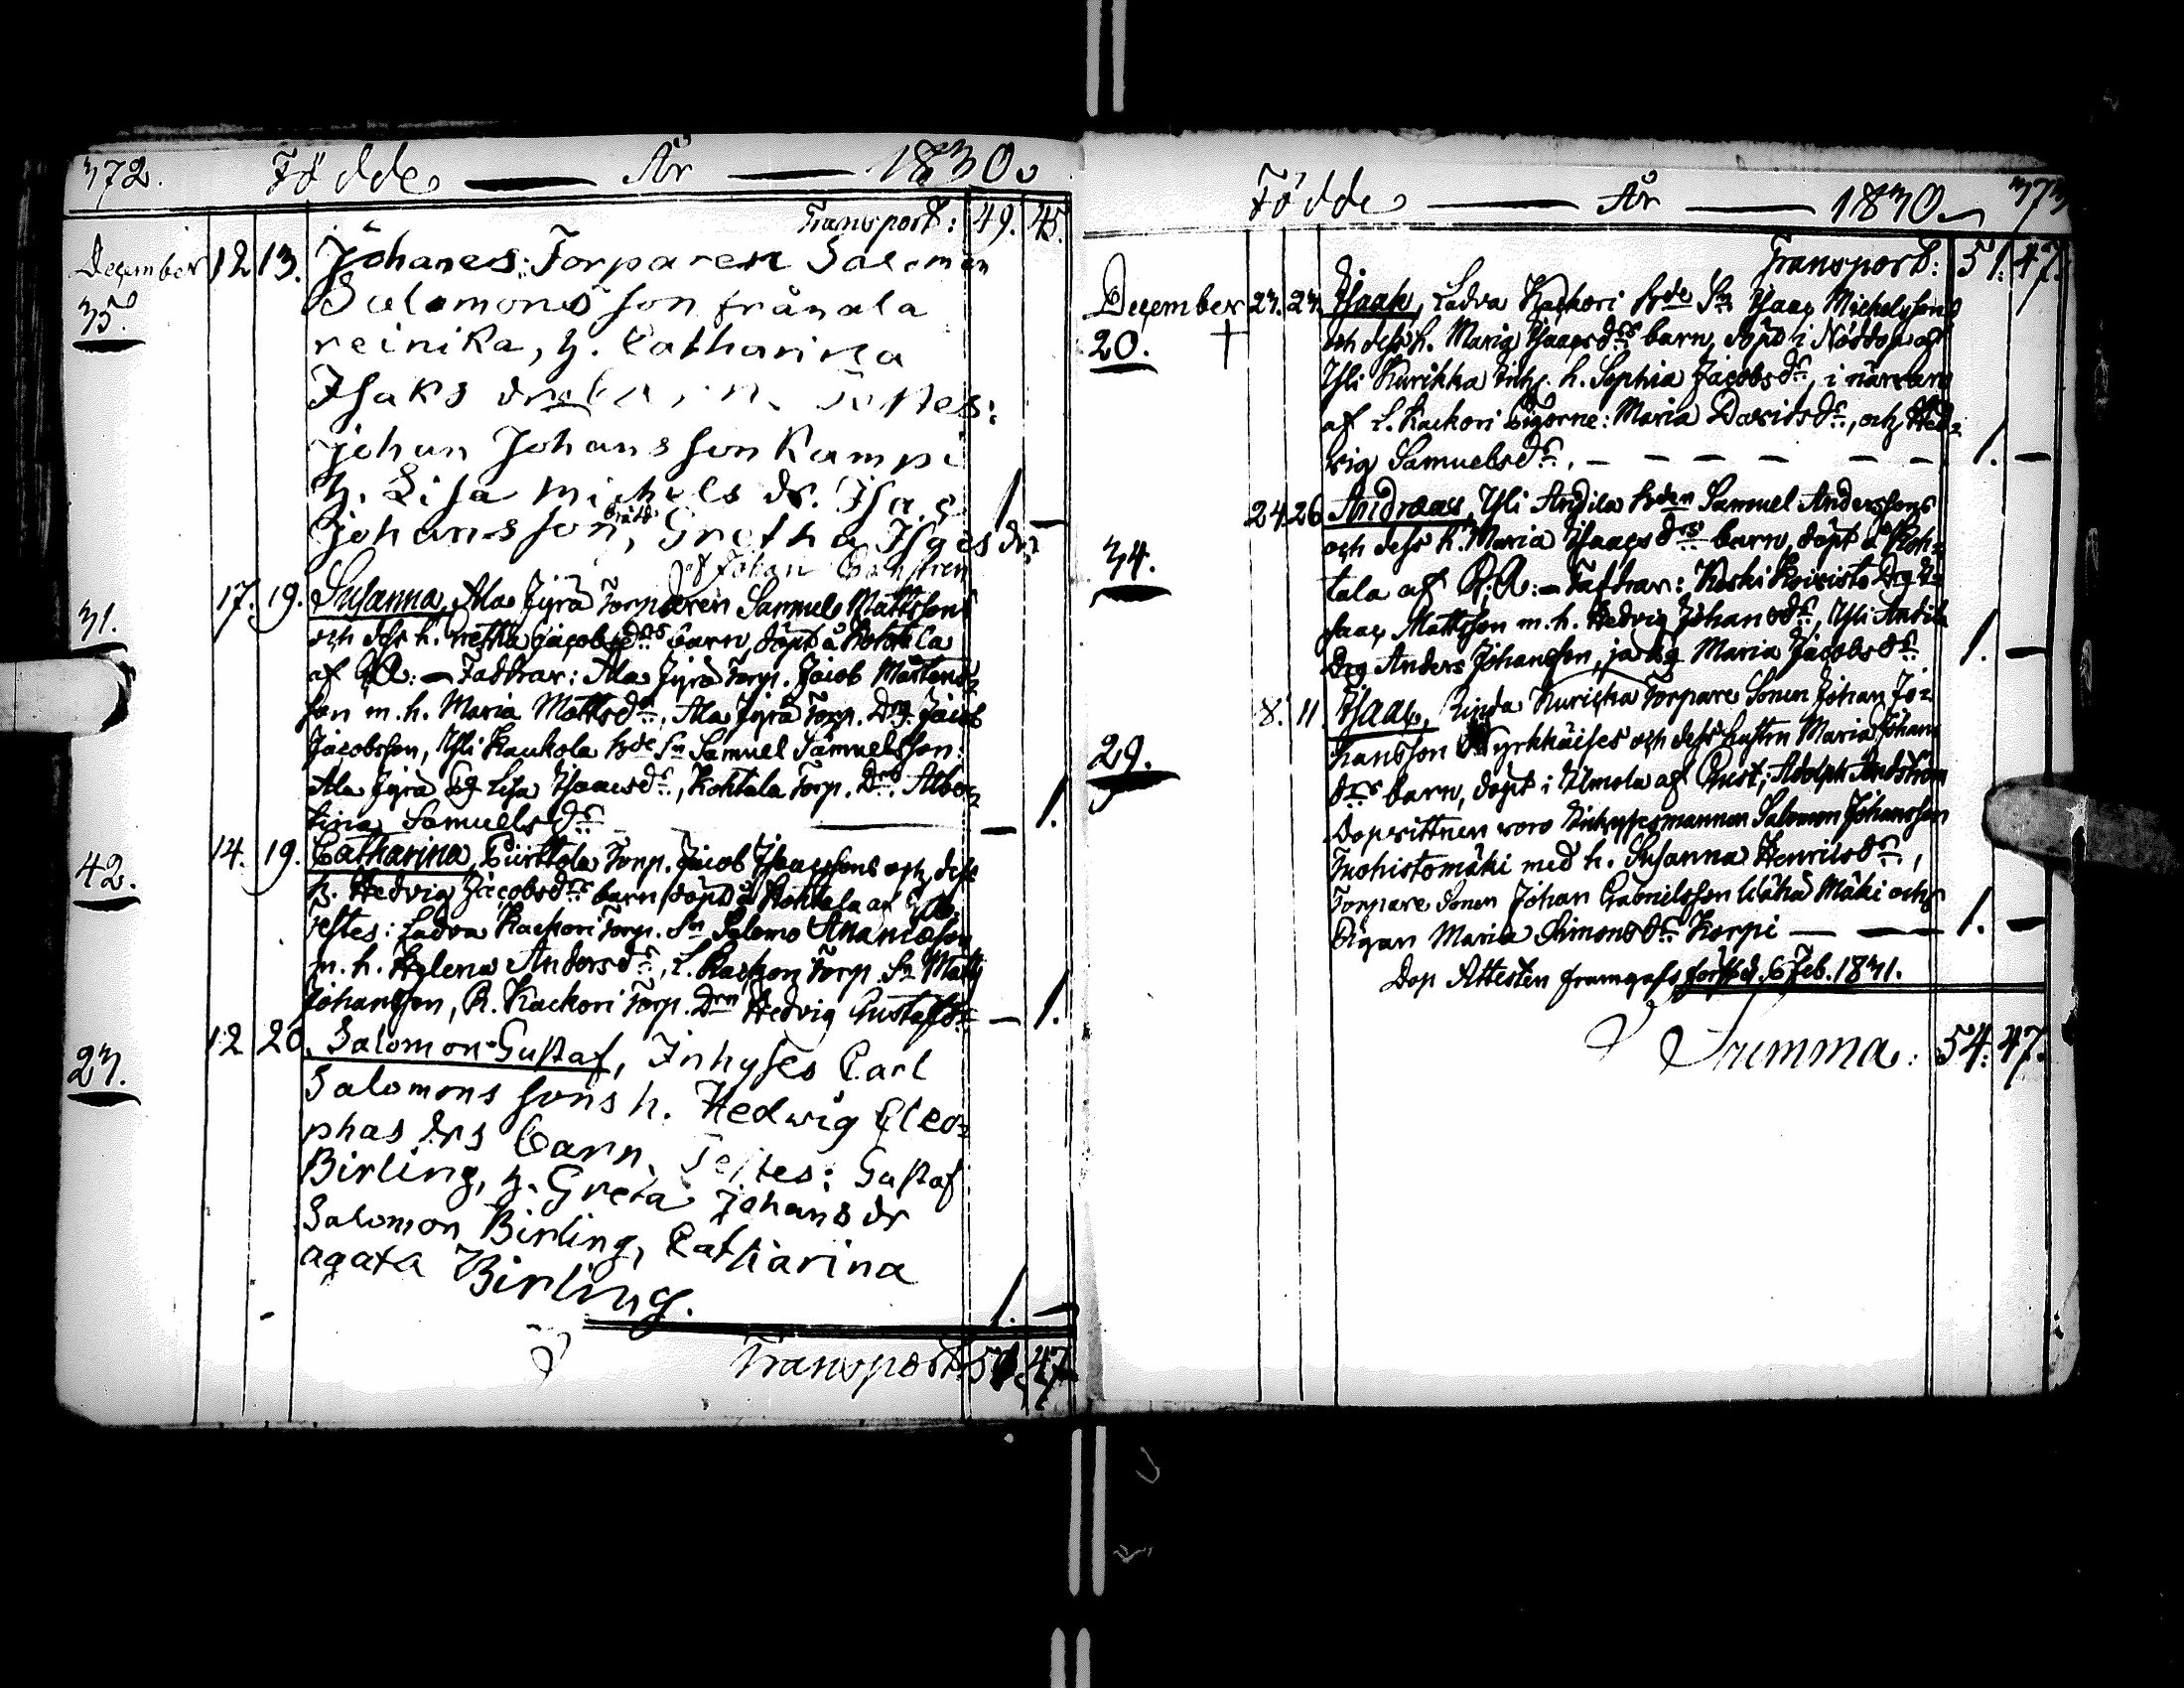 372. Födde — År — 1830.
Transport: 49. 45.
December 12 13. Johanes: Torparen Salomon
35. Salomons son från ala
reinika, h. Catharina
Isaks dr barn. Testes:
Johan Johansson Kampi
h. Lisa Michels dr. Isac
Johansson, Gretha Isacs dr 1. —
af Johan
17. 19. Susanna, Ala Jyrä Torparen Samuel Mattssons
31. och dess h. Gretha Jacobsdrs barn, döpt å Kohtala
af — Faddrar: Ala Jyrä Torp. Jacob Mårtens-
son m. h. Maria Mattsdr, Ala Jyrä Torp. Drg. Jacob
Jacobsson, Yli Kaukola Bde Sn Samuel Samuelsson,
Ala Jyrä Pig Lisa Isaacsdr, Kohtala Torp. Dr. Alber-
tina Samuelsdr — 1.
14. 19. Catharina, Torp. Jacob Isaacssons och dess
42. h. Hedvig Jacobsdrs barn, döpt å Kohtala af
Testes: Ladva Kackori Torp. Sn Salomo Ananiasson
m. h. Helena Andersdr, L. Kackori Torp. Sn Matts
Johansson, R. Kackori Torp. Drn Hedvig Gustafsdr — 1.
12 20. Salomon Gustaf, Inhyses Carl
23. Salomons sons h. Hedwig Cleo-
phas drs barn. Testes: Gustaf
Birling, h. Greta Johans dr
Salomon Birling, Catharina
agata Birling.
1. —
Transport: 51. 47.
Födde — År — 1830. 373
Transport: 51. 47.
December 23. 23. Isaak, Ladva Kackori Bde Sn Isaac Michelssons
20. † och dess h. Maria Isaacsdrs barn, döpt i Nöddop af
Yli Kurikka Inh. h. Sophia Jacobsdr, i närvaro
af L. Kackori Pigorne: Maria Davidsdr, och Hed-
vig Samuelsdr. — — — — — — 1. —
24 26 Andreas, Yli Andila Bden Samuel Anderssons
34. och dess h. Maria Isaacsdrs barn, döpt å Koh-
tala af — Faddrar: Koski Koivisto Drg I-
saac Mattsson m. h. Hedvig Johansdr, Yli Antila
Drg Anders Johansson, ja Pig Maria Jacobsdr 1. —
8. 11. Isaac, Kurikka Torpare Sonen Johan Jo-
29. hansson och dess hustru Maria Johans
drs barn, döpt i Ilmola af Adolph
Dopvittnen voro Inhysesmannen Salomon Johansson
Tuohistomäki med h. Susanna Henricsdr,
Torpare Sonen Johan Gabrielsson Wähä Mäki och
Pigan Maria Simonsdr Korpi — — 1. —
Dop Attesten framgafs först d. 6 Feb. 1831.
Summa: 54. 47.